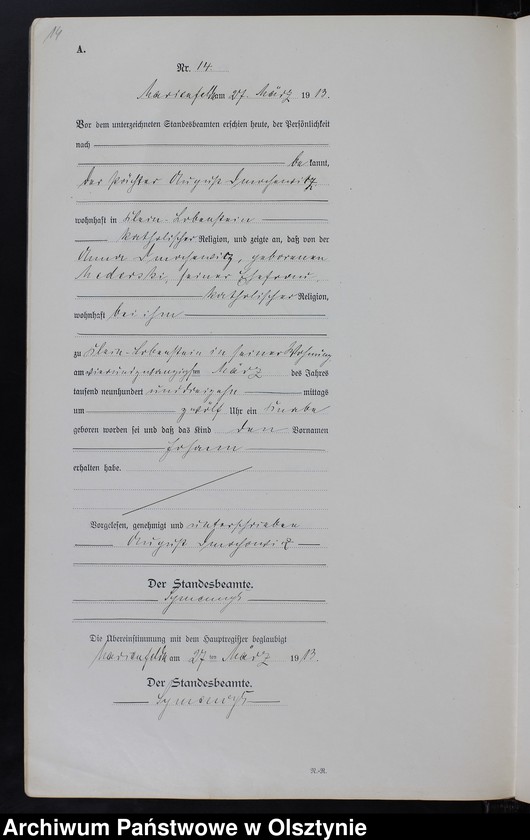 14
A.
Nr. 14.
Marienfelde am 27. März 1913.
Vor dem unterzeichneten Standesbeamten erschien heute, der Persönlichkeit
nach
be kannt,
der August
wohnhaft in Klein-Lobenstein
katholischer Religion, und zeigte an, daß von der
Anna geborenen
seiner Ehefrau
katholischer Religion,
wohnhaft bei ihm
zu Klein-Lobenstein in seiner Wohnung
am vierundzwanzigsten März des Jahres
tausend neunhundert und dreizehn mittags
um zwölf Uhr ein Knabe
geboren worden sei und daß das Kind den Vornamen
Johann
erhalten habe.
Vorgelesen, genehmigt und unterschrieben
August
Der Standesbeamte.
Die Übereinstimmung mit dem Hauptregister beglaubigt
Marienfelde am 27ten März 1913.
Der Standesbeamte.
R.-R.
Archiwum Państwowe w Olsztynie